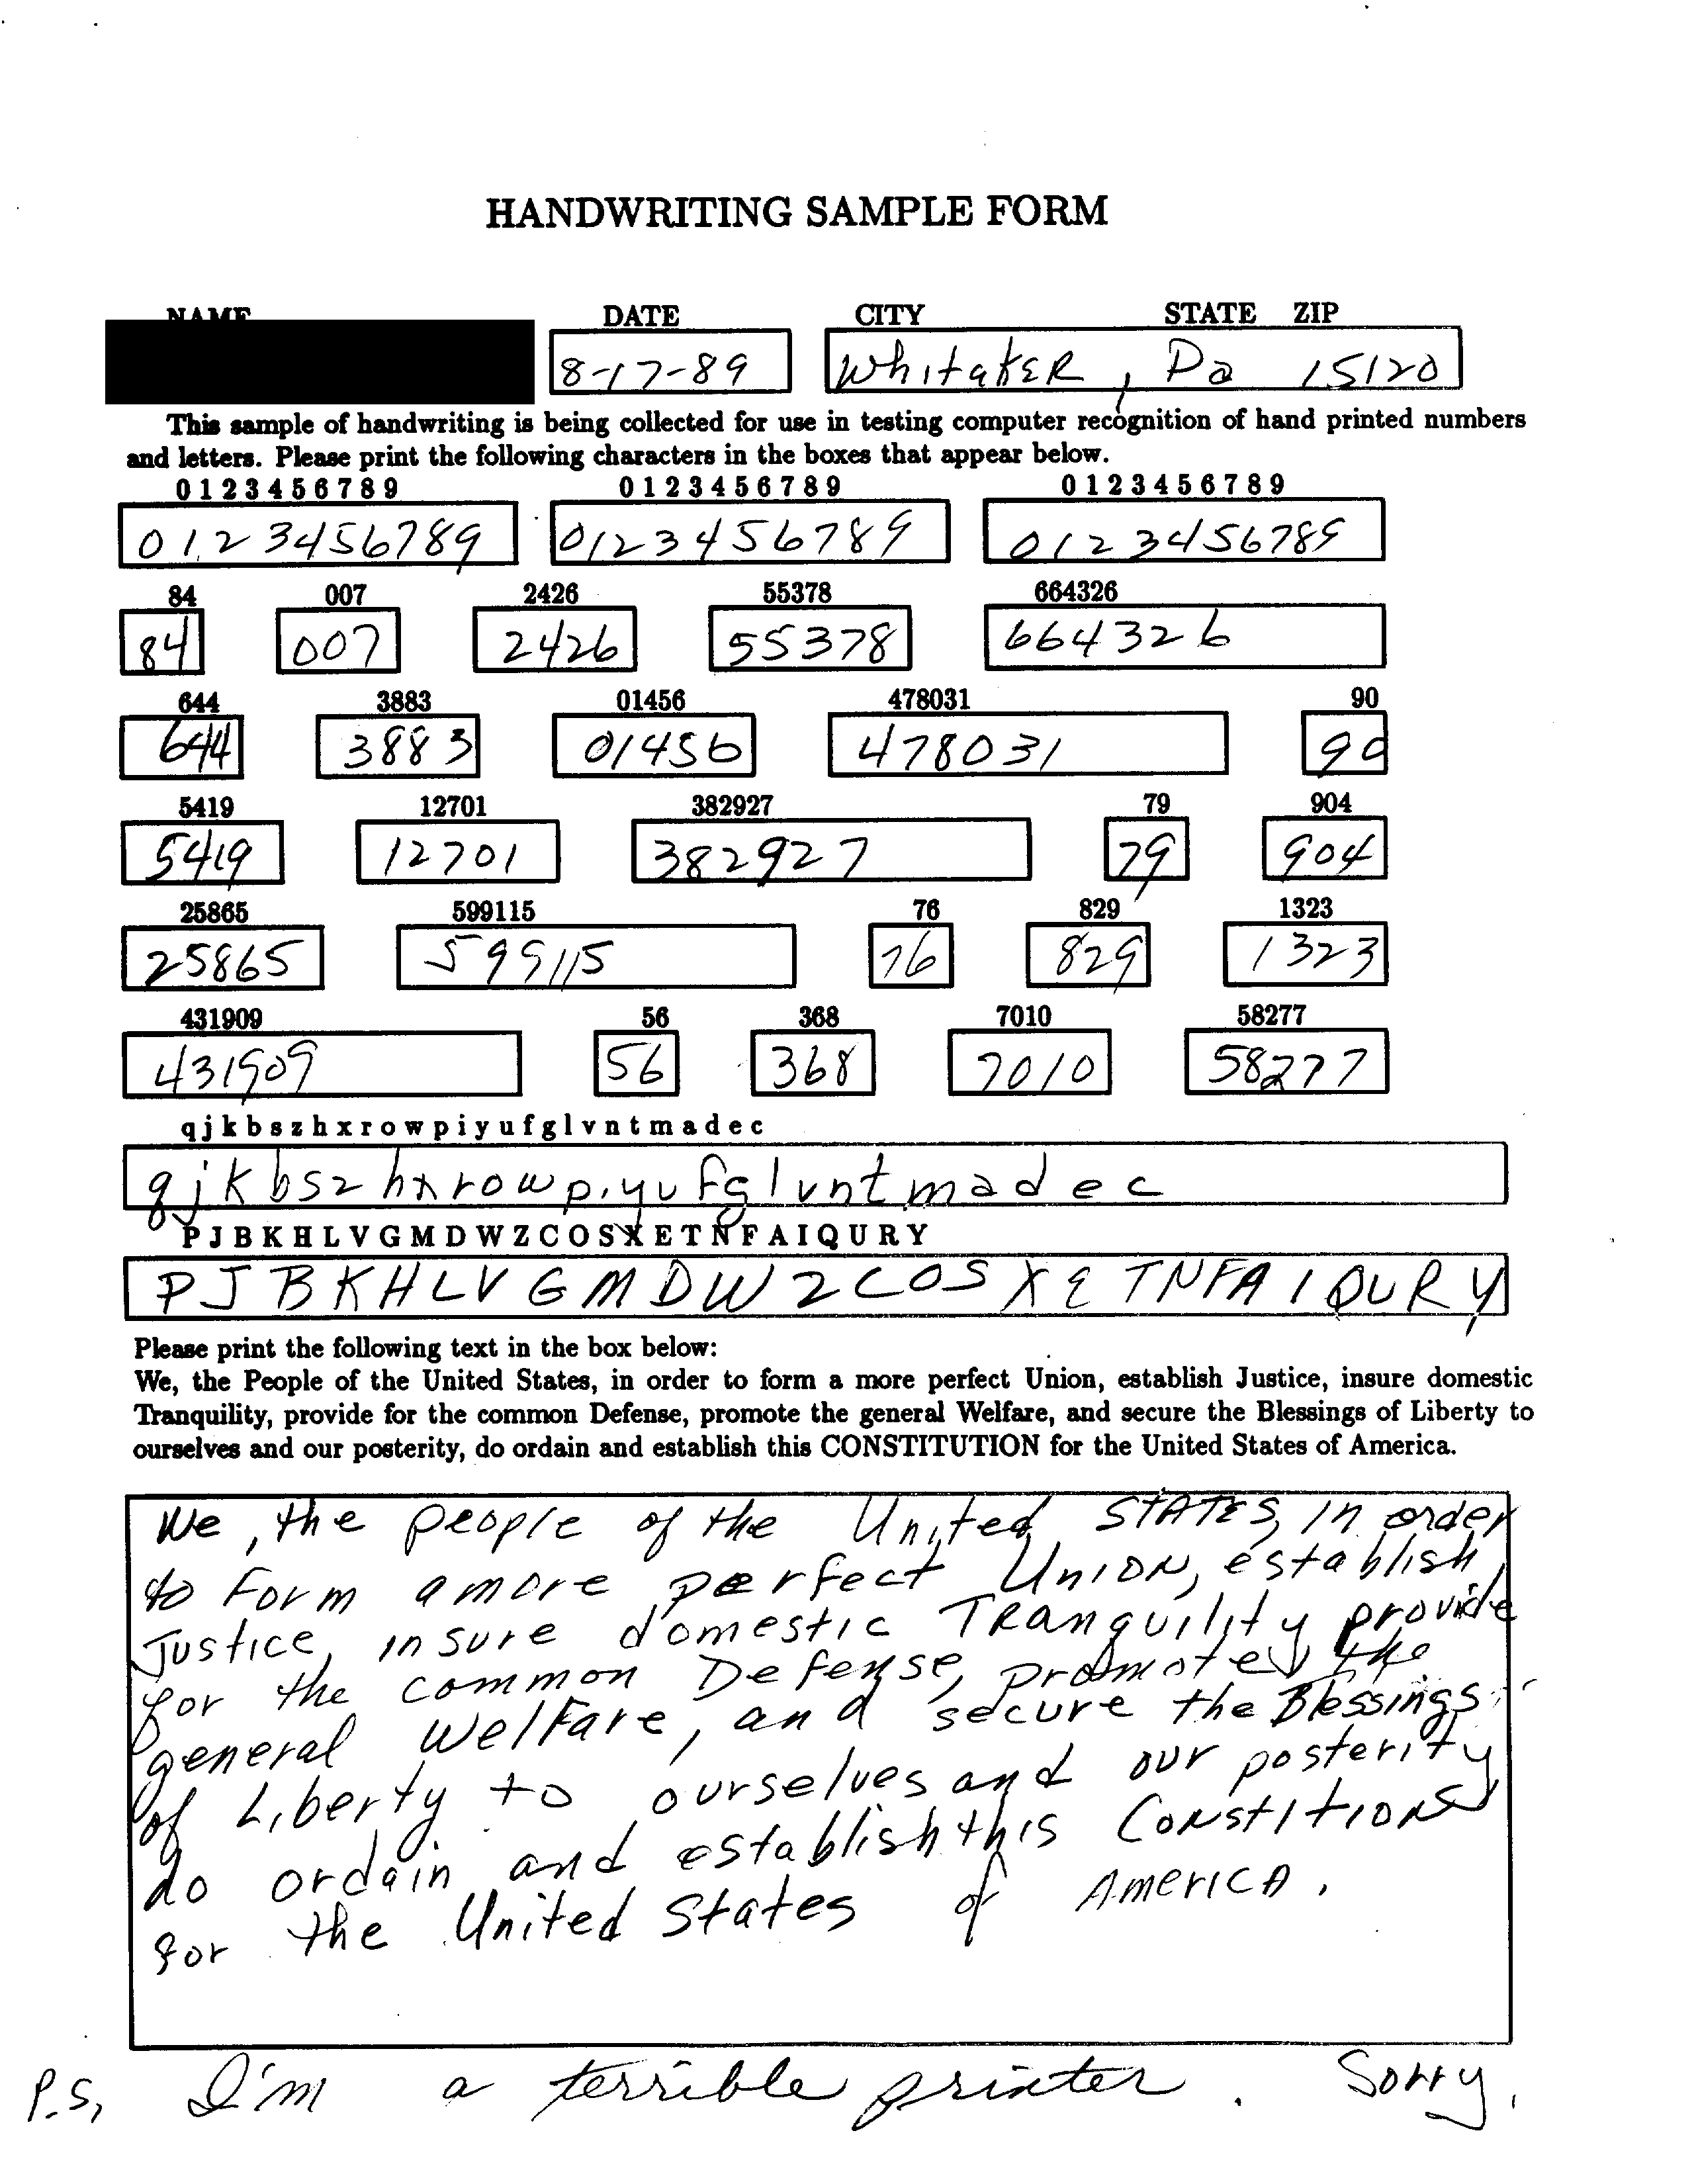 HANDWRITING SAMPLE FORM
NAME DATE CITY STATE ZIP
8-17-89 Whitaker, Pa 15120
This sample of handwriting is being collected for use in testing computer recognition of hand printed numbers
and letters. Please print the following characters in the boxes that appear below.
0 1 2 3 4 5 6 7 8 9 0 1 2 3 4 5 6 7 8 9 0 1 2 3 4 5 6 7 8 9
0123456789 0123456789 0123456789
84 007 2426 55378 664326
84 007 2426 55378 664326
644 3883 01456 478031 90
644 3883 01456 478031 90
5419 12701 382927 79 904
5419 12701 382927 79 904
25865 599115 76 829 1323
25865 599115 76 829 1323
431909 56 368 7010 58277
431909 56 368 7010 58277
q j k b s z h x r o w p i y u f g l v n t m a d e c
q j k b s z h x r o w p i y u f g l v n t m a d e c
P J B K H L V G M D W Z C O S X E T N F A I Q U R Y
P J B K H L V G M D W Z C O S X E T N F A I Q U R Y
Please print the following text in the box below:
We, the People of the United States, in order to form a more perfect Union, establish Justice, insure domestic
Tranquility, provide for the common Defense, promote the general Welfare, and secure the Blessings of Liberty to
ourselves and our posterity, do ordain and establish this CONSTITUTION for the United States of America.
We, the people of the United STATES, in order
to form a more perfect Union, establish
Justice, insure domestic Tranquility provide
for the common Defense, promote the
general Welfare, and secure the Blessings
of Liberty to ourselves and our posterity
do ordain and establish this Constitions
for the United States of America.
P.S, I'm a terrible printer. Sorry.